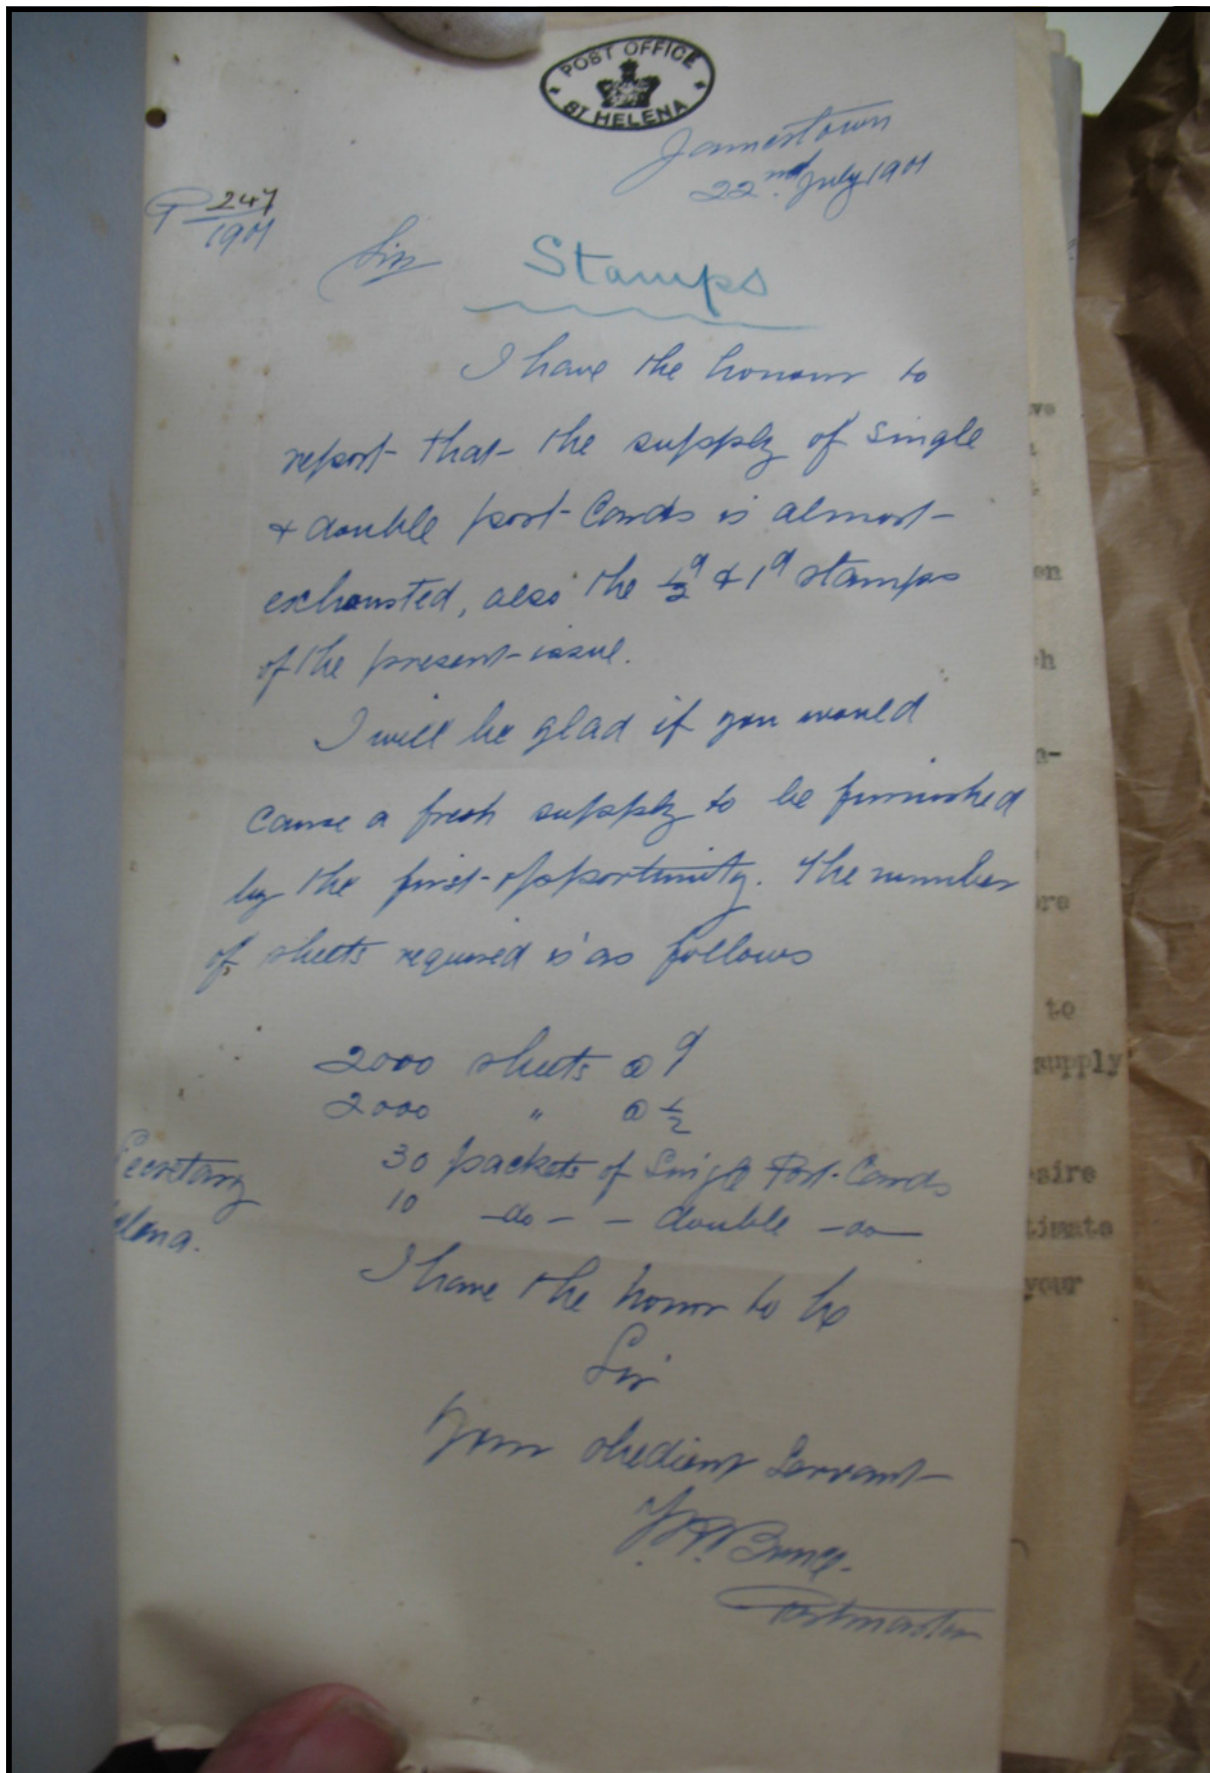 POST OFFICE
ST HELENA
Jamestown
22nd July 1901
P 247
1901
Sir
Stamps
I have the honour to
report that the supply of single
& double post-Cards is almost
exhausted, also the ½d & 1d stamps
of the present issue.
I will be glad if you would
cause a fresh supply to be furnished
by the first opportunity. The number
of sheets required is as follows
2000 sheets @ d
2000 " @ ½
30 packets of Single Post-Cards
10 -do- - double -do-
Secretary
elena.
I have the honor to be
Sir
Your obedient Servant
Postmaster
ve
en
h
e-
re
to
supply
sire
timate
your